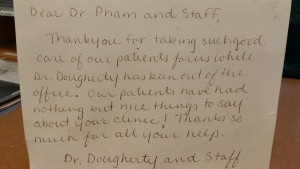 Dear Dr. Pham and Staff,
Thankyou for taking such good
care of our patients for us while
Dr. Dougherty has been out of the
office. Our patients have had
nothing but nice things to say
about your clinic! Thanks so
much for all your help.
Dr. Dougherty and Staff